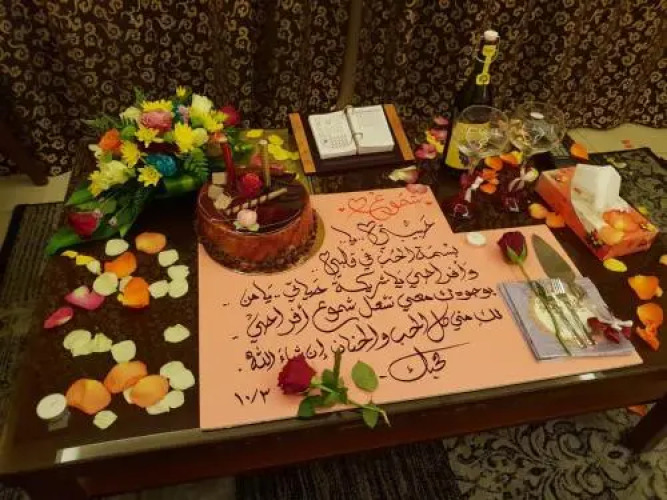 حبيبتي
بسمة الحب في قلبي
وأفراحي يا شريكة حياتي .. يا من
بوجودك معي تشعل شموع أفراحي
لك مني كل الحب والحنان إن شاء الله .
محبك
١٠/٣